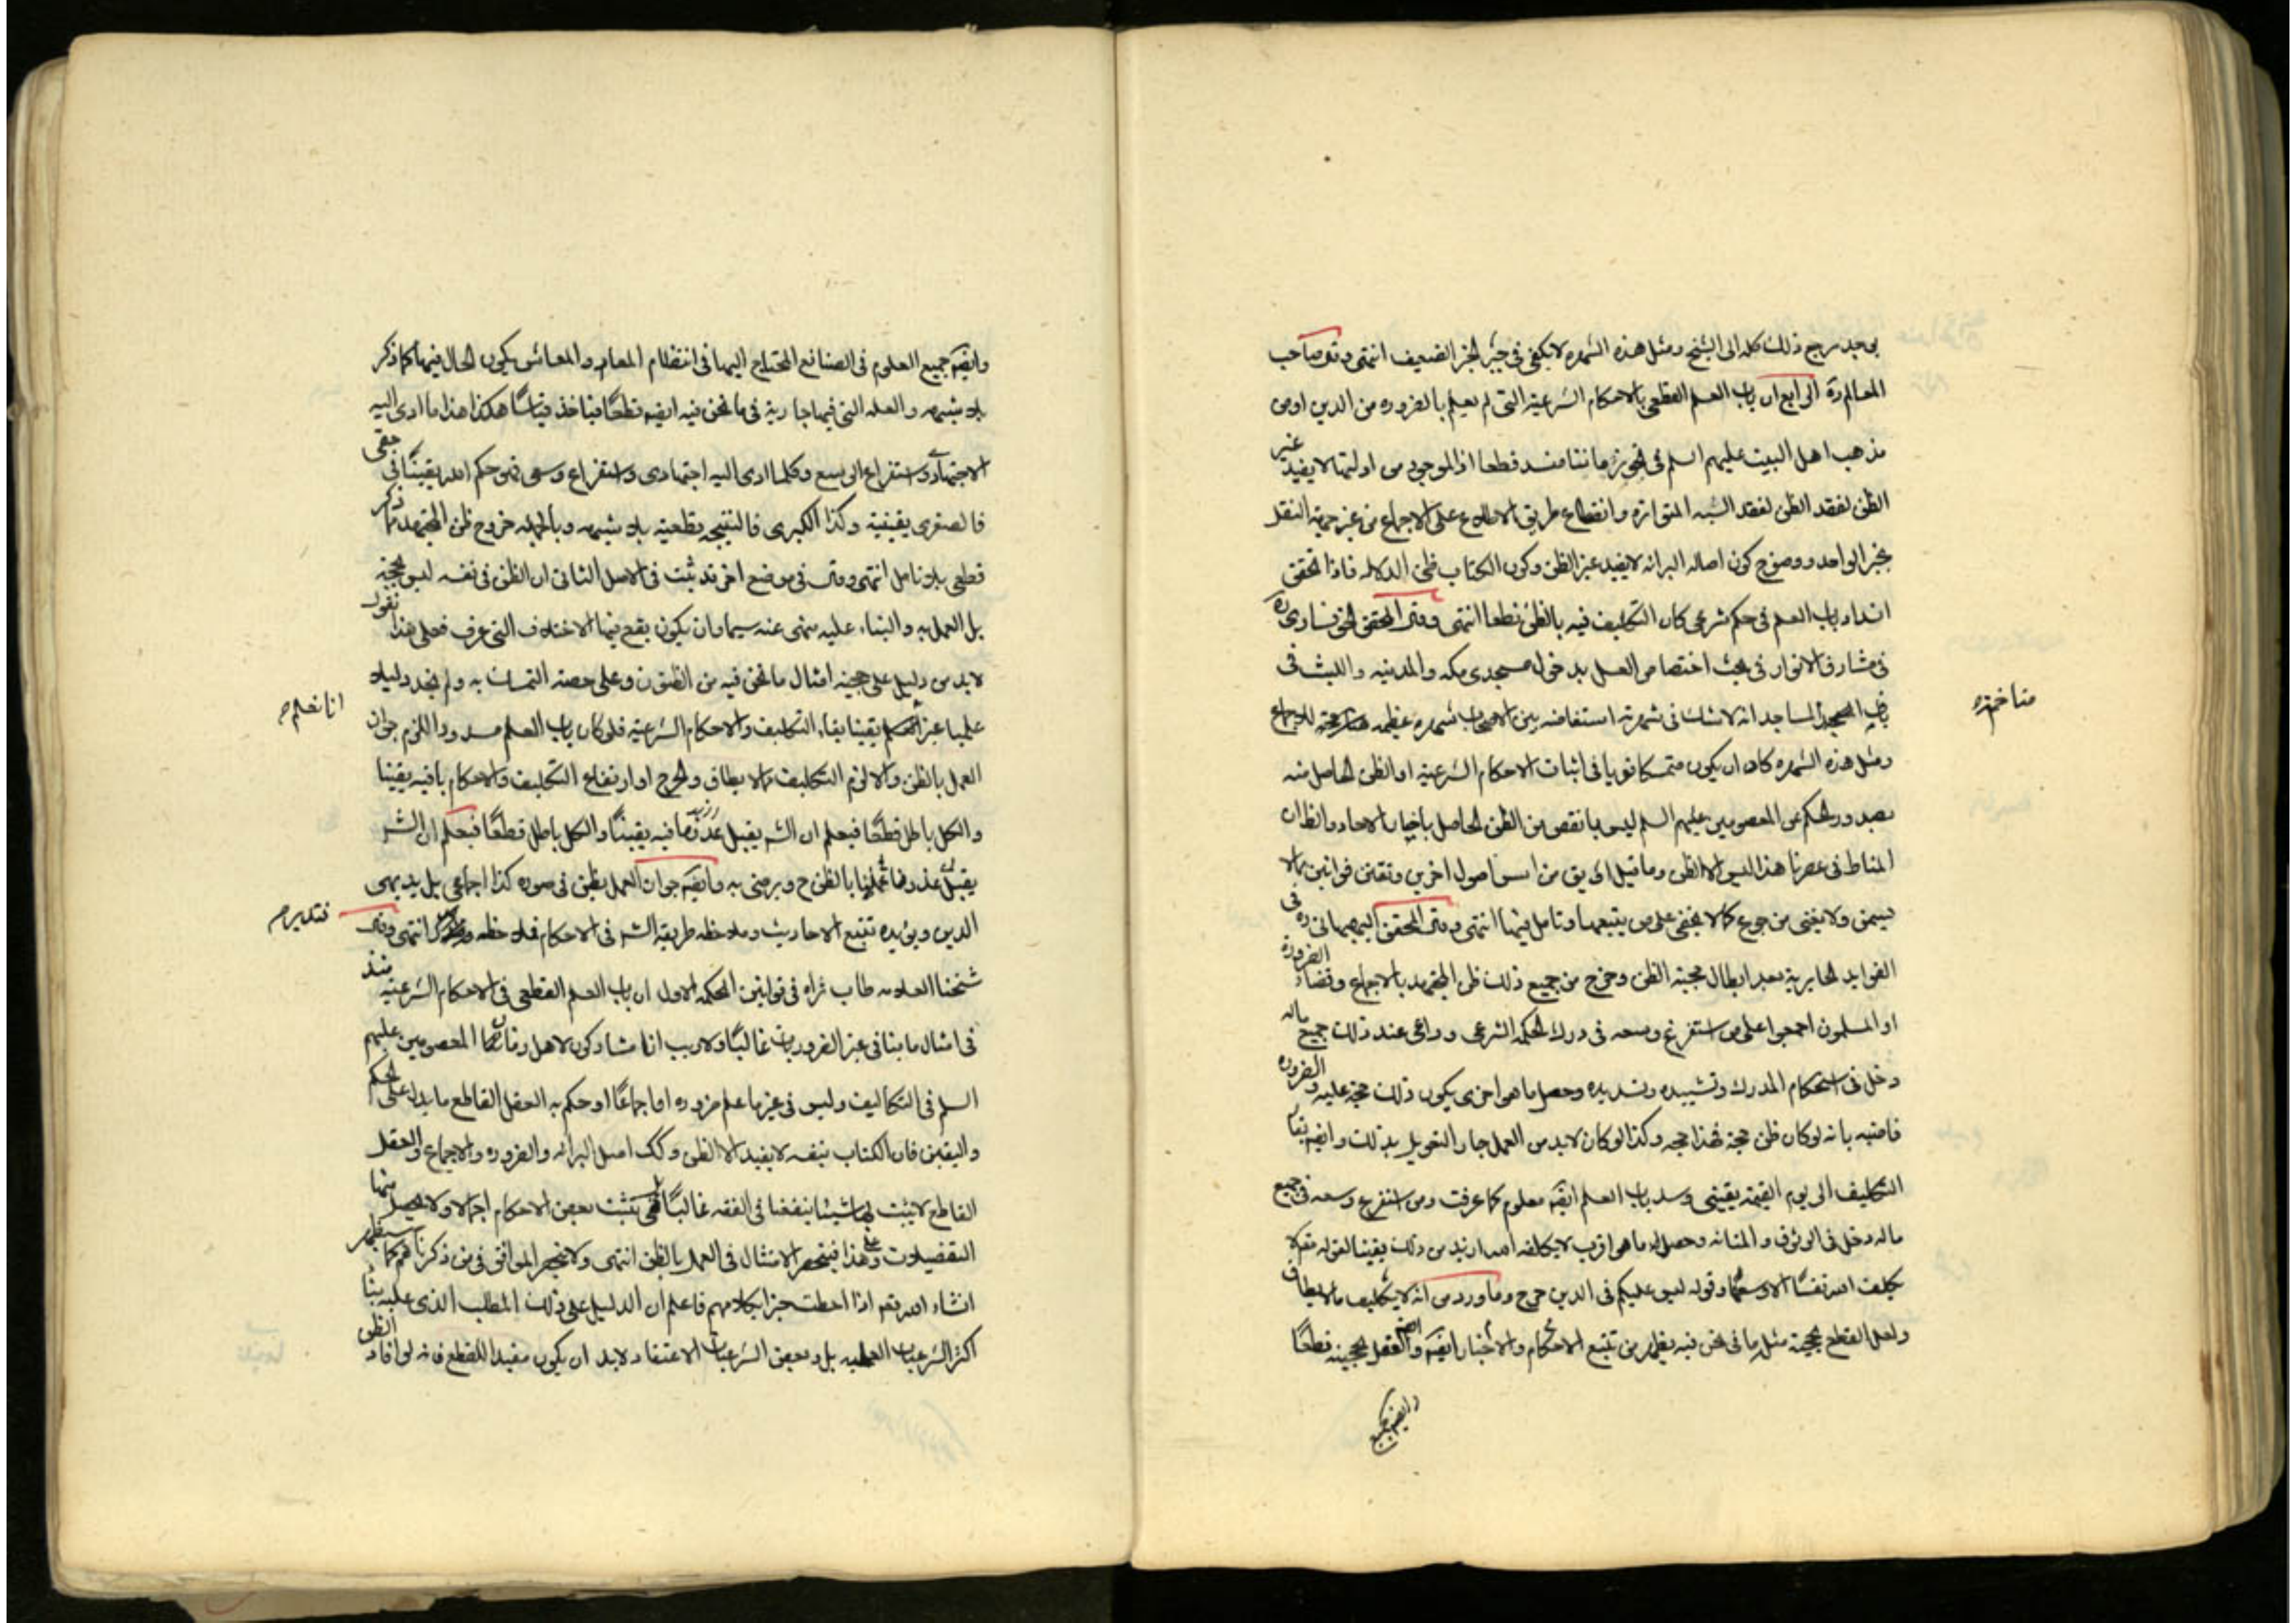 يوجد مرجع ذلك كله الى الشيخ ومثل هذه الشهرة لا يكفى فى جبر الخبر الضعيف انتهى وقى صاحب
المعالم ره الرابع ان باب العلم القطعى بالاحكام الشرعية التى لم يعلم بالضروره من الدين او من
مذهب اهل البيت عليهم السلم فى نحو زماننا منسد قطعا اذ الموجود من ادلتها لا يفيد غير
الظن لفقد الظن لفقد السنه المتواتره وانقطاع طريق الاطلاع على الاجماع من غير جهة النقل
بخبر الواحد ووضوح كون اصاله البرائه لا يفيد غير الظن وكون الكتاب ظنى الدلاله فاذا تحقق
انسداد باب العلم فى حكم شرعى كان التكليف فيه بالظن قطعا انتهى وقى المحقق الخونسارى ره
فى مشارق الانوار فى بحث اختصاص الغسل بدخول مسجدى مكه والمدينه واللبث فى
باقى المساجد انه لا شك فى شهرته استفاضه بين الاصحاب شهره عظيمه للاجماع
ومثل هذه الشهره كاد ان يكون متمسكا قويا فى اثبات الاحكام الشرعية او الظن الحاصل منه
بصدور الحكم عن المعصومين عليهم السلم ليس بانقص من الظن الحاصل باخبار الاحاد وانظ ان
المناط فى عصرنا هذا ليس الا الظن وما قيل من اسس اصول اخرين وتقنن قوانين مما لا
يسمن ولا يغنى من جوع كما لا يخفى على من يتبعها وتامل فيها انتهى وقى المحقق البهبهانى ره فى
الفوايد الحايرية بعد ابطال حجية الظن وخرج من جميع ذلك ظن المجتهد بالاجماع وقضاء الضرورة
اذ المسلمون اجمعوا على من استفرغ وسعه فى درك الحكم الشرعى وراعى عند ذلك جميع ماله
دخل فى استحكام المدرك وتشييده وتسديده وحصل ما هو احرى يكون ذلك حجة عليه والضروره
قاضيه بانه لو كان ظن حجة فهذا حجه وكذا لو كان لابد من العمل جاز التعويل بذلك وايضه بقاء
التكليف الى يوم القيمة يقينى وسد باب العلم ايضه معلوم كما عرفت ومن استفرغ وسعه فى جميع
ماله دخل فى الوثوق والمتانه وحصل له ما هو اقرب لا يكلفه الله ازيد من ذلك يقينا لقوله لا
يكلف الله نفسا الا وسعها وقوله ليس عليكم فى الدين حرج وما ورد من انه لا تكليف ما لا يطاق
ولعل القطع بحجية مثل ما نحن فيه يظهر من تتبع الاحكام والاخبار ايضه والعقل بحجيته قطعا
وايضه جميع
وايضه جميع العلوم فى الصنايع المحتاج اليها فى انتظام المعاد والمعاش يكون الحال فيها كما ذكر
بلا شبهه والعله التى فيها جارية فى ما نحن فيه ايضه قطعا فتاخذ قياسا هكذا هذا ما ادى اليه
الاجتهاد واستفراغ الوسع وكلما ادى اليه اجتهادى واستفراغ وسعى فهو حكم الله يقينا فى حقى
فالصغرى يقينية وكذا الكبرى فالنتيجه قطعيه بلا شبهه وبالجمله خروج ظن المجتهد مما ذكر
قطعى بلا تامل انتهى وقى فى موضع اخر قد ثبت فى الاصل الثانى ان الظن فى نفسه ليس بحجة
بل العمل به والبناء عليه منهى عنه سيما وان يكون يقع فيها الاختلاف التى عرف فعلى هذا نقول
لابد من دليل على حجية امثال ما نحن فيه من الظنون وعلى صحة التمسك به ولم نجد دليلا
عليها غير انا نعلم يقينا بقاء التكليف والاحكام الشرعية فلو كان باب العلم مسدودا للزم جواز
العمل بالظن والا لزم التكليف بما لا يطاق والحرج او ارتفاع التكليف والاحكام باقيه يقينا
والكل باطل قطعا فيعلم ان الشر يقبل عذرنا فيه يقينا والكل باطل قطعا فيعلم ان الشر
يقبل عذرنا عملنا بالظن ح ويرضى به وايضه جواز العمل بظن فى صوره كذا اجماعى بل بديهى
الدين ويؤيده تتبع الاحاديث وملاحظه طريقه الشر فى الاحكام فلاحظه انتهى وقى
شيخنا العلامه طاب ثراه فى قوانين المحكمه الاول ان باب العلم القطعى فى الاحكام الشرعيه منسد
فى امثال زماننا فى غير الضروريات غالبا ولا ريب انا مشاركون لاهل زمان المعصومين عليهم
السلم فى التكاليف وليس فى غير ما علم ضروره او اجماعا او حكم به العقل القاطع ما يدل على الحكم
واليقين فان الكتاب بنفسه لا يفيد الا الظن وكك اصل البرائه والضروره والاجماع والعقل
القاطع لا يثبت بها شيئا ينفعنا فى الفقه غالبا بل يثبت بعض الاحكام اجمالا ولا يحصل منها
التفصيلات وعلى هذا فينحصر الامتثال فى العمل بالظن انتهى ولا ينحصر الموافق فى من ذكرناهم كما سيظهر
انشاء الله تعه اذا احطت خبرا بكلامهم فاعلم ان الدليل على ذلك المطلب الذى عليه بناء
اكثر الشرعيات العمليه بل وبعض الشرعيات الاعتقاد لابد ان يكون مفيدا للقطع فانه لو افاد الظن
انا نعلم م
فتدبر م